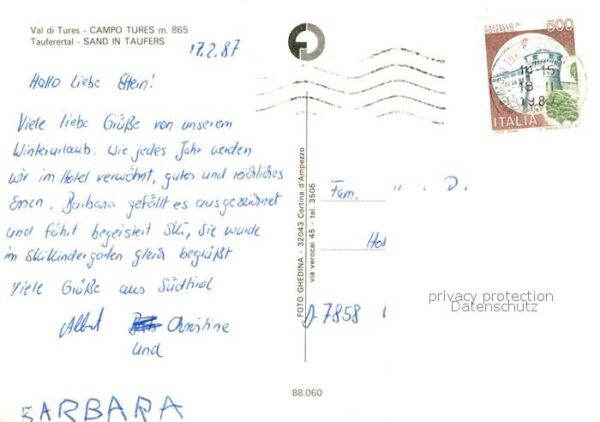 Val di Tures - CAMPO TURES m. 865
Tauferertal - SAND IN TAUFERS
17.2.87
Hallo liebe Eltern!
Viele liebe Grüße von unserem
Winterurlaub. Wie jedes Jahr werden
wir im Hotel verwöhnt, gutes und reichliches
Essen. Barbara gefällt es ausgezeichnet
und fährt begeistert Ski, sie wurde
im Skikindergarten gleich begrüßt
Viele Grüße aus Südtirol
Albert Christine
und
BARBARA
FOTO GHEDINA - 32043 Cortina d'Ampezzo
via verocai 45 - tel. 3505
88.060
500
ITALIA
14-15
18 II
198
Fam. D.
D-7858
privacy protection
Datenschutz